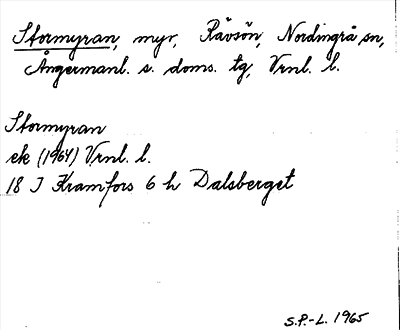 Stormyran, myr, Rävsön, Nordingrå sn,
Ångermanl. s. doms. tg, Vrnl. l.
Stormyran
ek (1964) Vrnl. l.
18 J Kramfors 6 h Dalsberget
S.P.-L. 1965